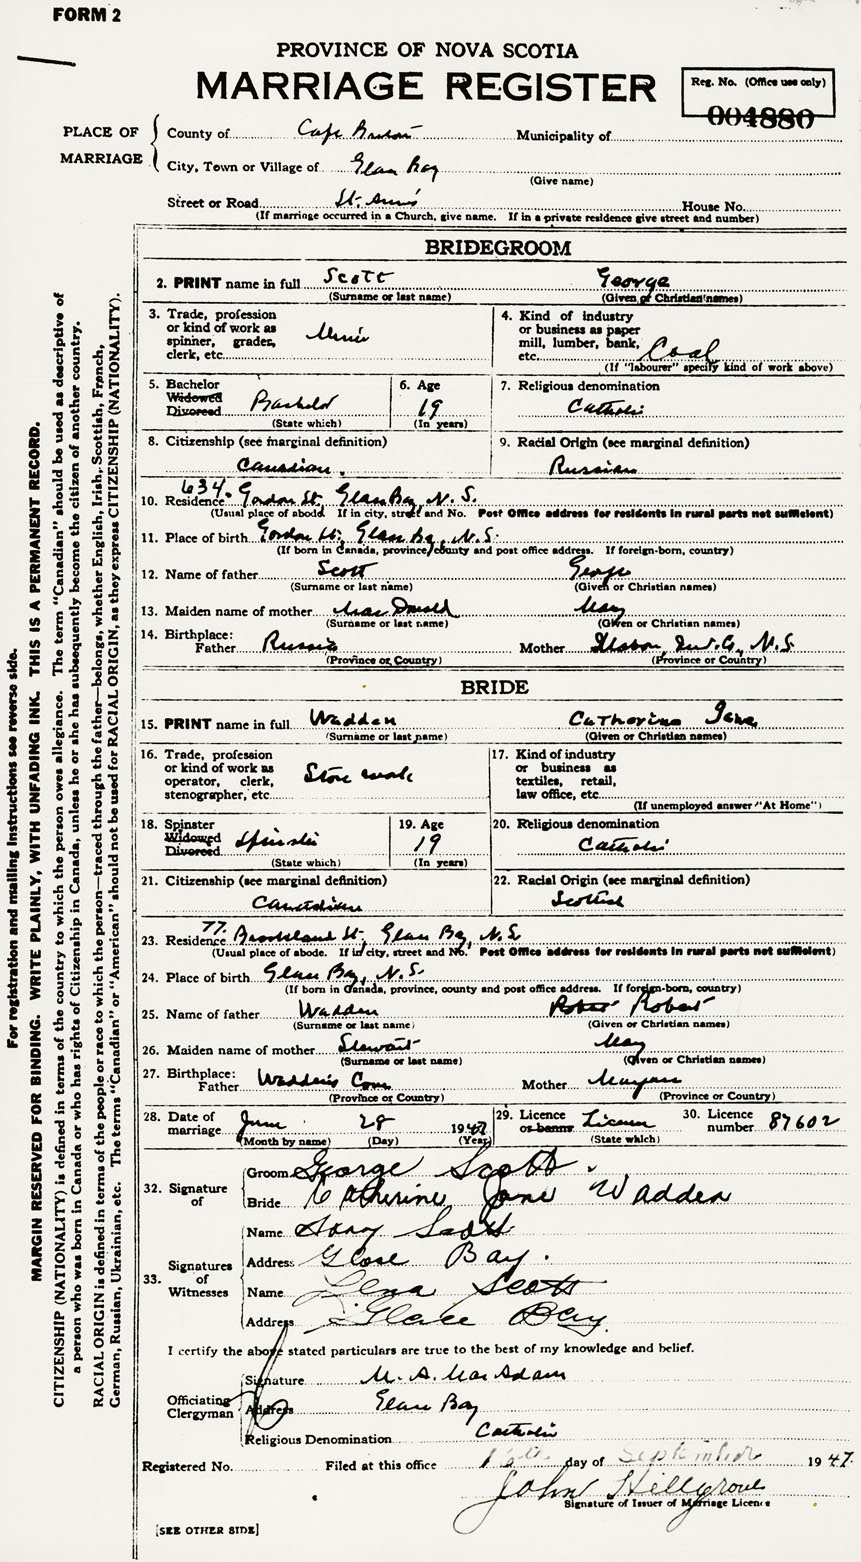 FORM 2
PROVINCE OF NOVA SCOTIA
MARRIAGE REGISTER
Reg. No. (Office use only)
004880
PLACE OF MARRIAGE
County of Cape Breton Municipality of
City, Town or Village of Glace Bay
(Give name)
Street or Road St. Anns House No.
(If marriage occurred in a Church, give name. If in a private residence give street and number)
BRIDEGROOM
2. PRINT name in full Scott George
(Surname or last name) (Given or Christian names)
3. Trade, profession or kind of work as spinner, grader, clerk, etc. Miner
4. Kind of industry or business as paper mill, lumber, bank, etc. Coal
(If "labourer" specify kind of work above)
5. Bachelor Widowed Divorced Bachelor
(State which)
6. Age 19
(In years)
7. Religious denomination Catholic
8. Citizenship (see marginal definition) Canadian.
9. Racial Origin (see marginal definition) Russian
10. Residence 634 Gordon St, Glace Bay, N.S.
(Usual place of abode. If in city, street and No. Post Office address for residents in rural parts not sufficient)
11. Place of birth Gordon St, Glace Bay, N.S.
(If born in Canada, province, county and post office address. If foreign-born, country)
12. Name of father Scott George
(Surname or last name) (Given or Christian names)
13. Maiden name of mother MacDonald May
(Surname or last name) (Given or Christian names)
14. Birthplace: Father Russia Mother Inv. Co., N.S
(Province or Country) (Province or Country)
BRIDE
15. PRINT name in full Wadden Catherine Jane
(Surname or last name) (Given or Christian names)
16. Trade, profession or kind of work as operator, clerk, stenographer, etc. Store work
17. Kind of industry or business as textiles, retail, law office, etc.
(If unemployed answer "At Home")
18. Spinster Widowed Divorced Spinster
(State which)
19. Age 19
(In years)
20. Religious denomination Catholic
21. Citizenship (see marginal definition) Canadian
22. Racial Origin (see marginal definition) Scottish
23. Residence 77 Brookland St, Glace Bay, N.S
(Usual place of abode. If in city, street and No. Post Office address for residents in rural parts not sufficient)
24. Place of birth Glace Bay, N.S.
(If born in Canada, province, county and post office address. If foreign-born, country)
25. Name of father Wadden Robert Robert
(Surname or last name) (Given or Christian names)
26. Maiden name of mother Stewart May
(Surname or last name) (Given or Christian names)
27. Birthplace: Father Waddens Cove Mother
(Province or Country) (Province or Country)
28. Date of marriage June 28 1947
(Month by name) (Day) (Year)
29. Licence or banns Licence
(State which)
30. Licence number 87602
32. Signature of
Groom George Scott
Bride Catherine Jane Wadden
33. Signatures of Witnesses
Name Scott
Address Glace Bay.
Name Lena Scott
Address Glace Bay
I certify the above stated particulars are true to the best of my knowledge and belief.
Officiating Clergyman
Signature M. A. MacAdam
Address Glace Bay
Religious Denomination Catholic
Registered No. Filed at this office day of September 1947.
John Hillgrove
Signature of Issuer of Marriage Licence
[SEE OTHER SIDE]
For registration and mailing instructions see reverse side.
MARGIN RESERVED FOR BINDING. WRITE PLAINLY, WITH UNFADING INK. THIS IS A PERMANENT RECORD.
CITIZENSHIP (NATIONALITY) is defined in terms of the country to which the person owes allegiance. The term "Canadian" should be used as descriptive of
a person who was born in Canada or who has rights of Citizenship in Canada, unless he or she has subsequently become the citizen of another country.
RACIAL ORIGIN is defined in terms of the people or race to which the person—traced through the father—belongs, whether English, Irish, Scottish, French,
German, Russian, Ukrainian, etc. The terms "Canadian" or "American" should not be used for RACIAL ORIGIN, as they express CITIZENSHIP (NATIONALITY).